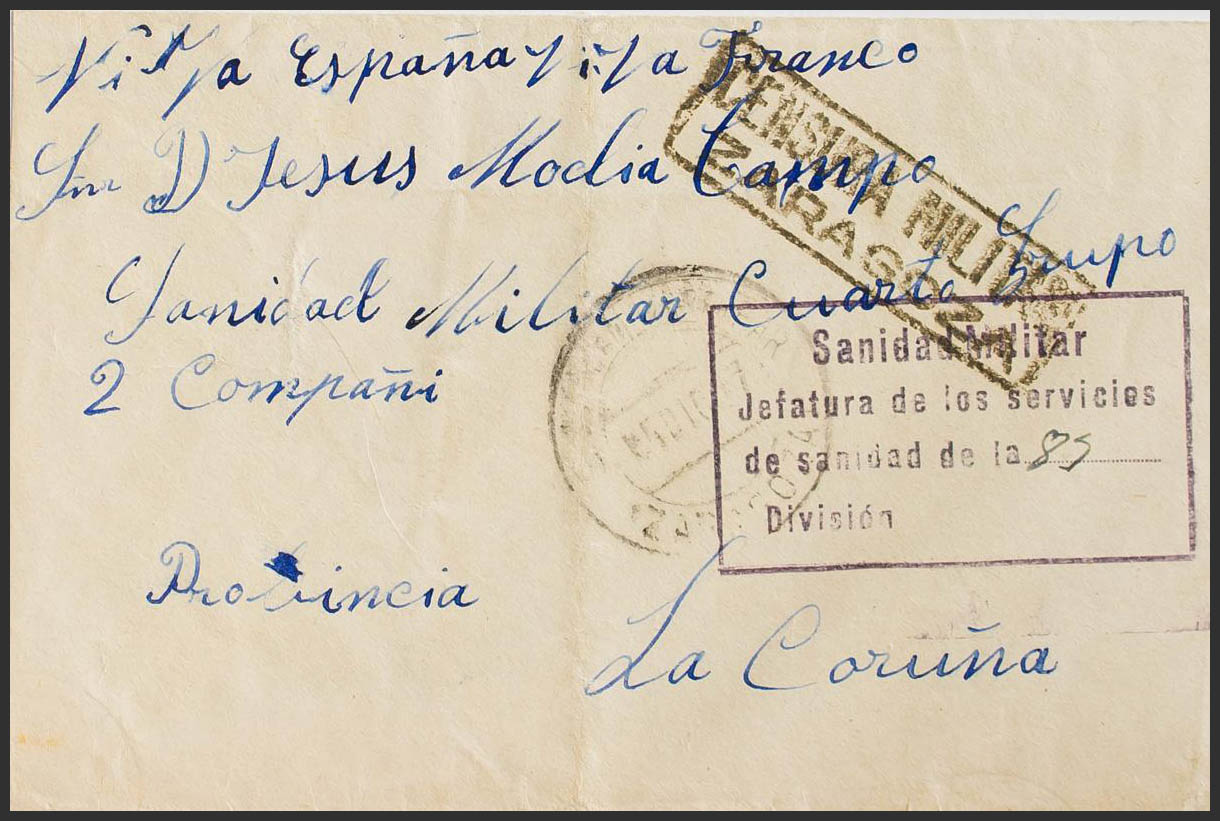 Viva España Viva Franco
Snr D Jesus Modia Campo
Sanidad Militar Cuarto Grupo
2 Compañi
Provincia
La Coruña
CENSURA MILITAR
ZARAGOZA
Sanidad Militar
Jefatura de los servicios
de sanidad de la 85
División
ZARAGOZA